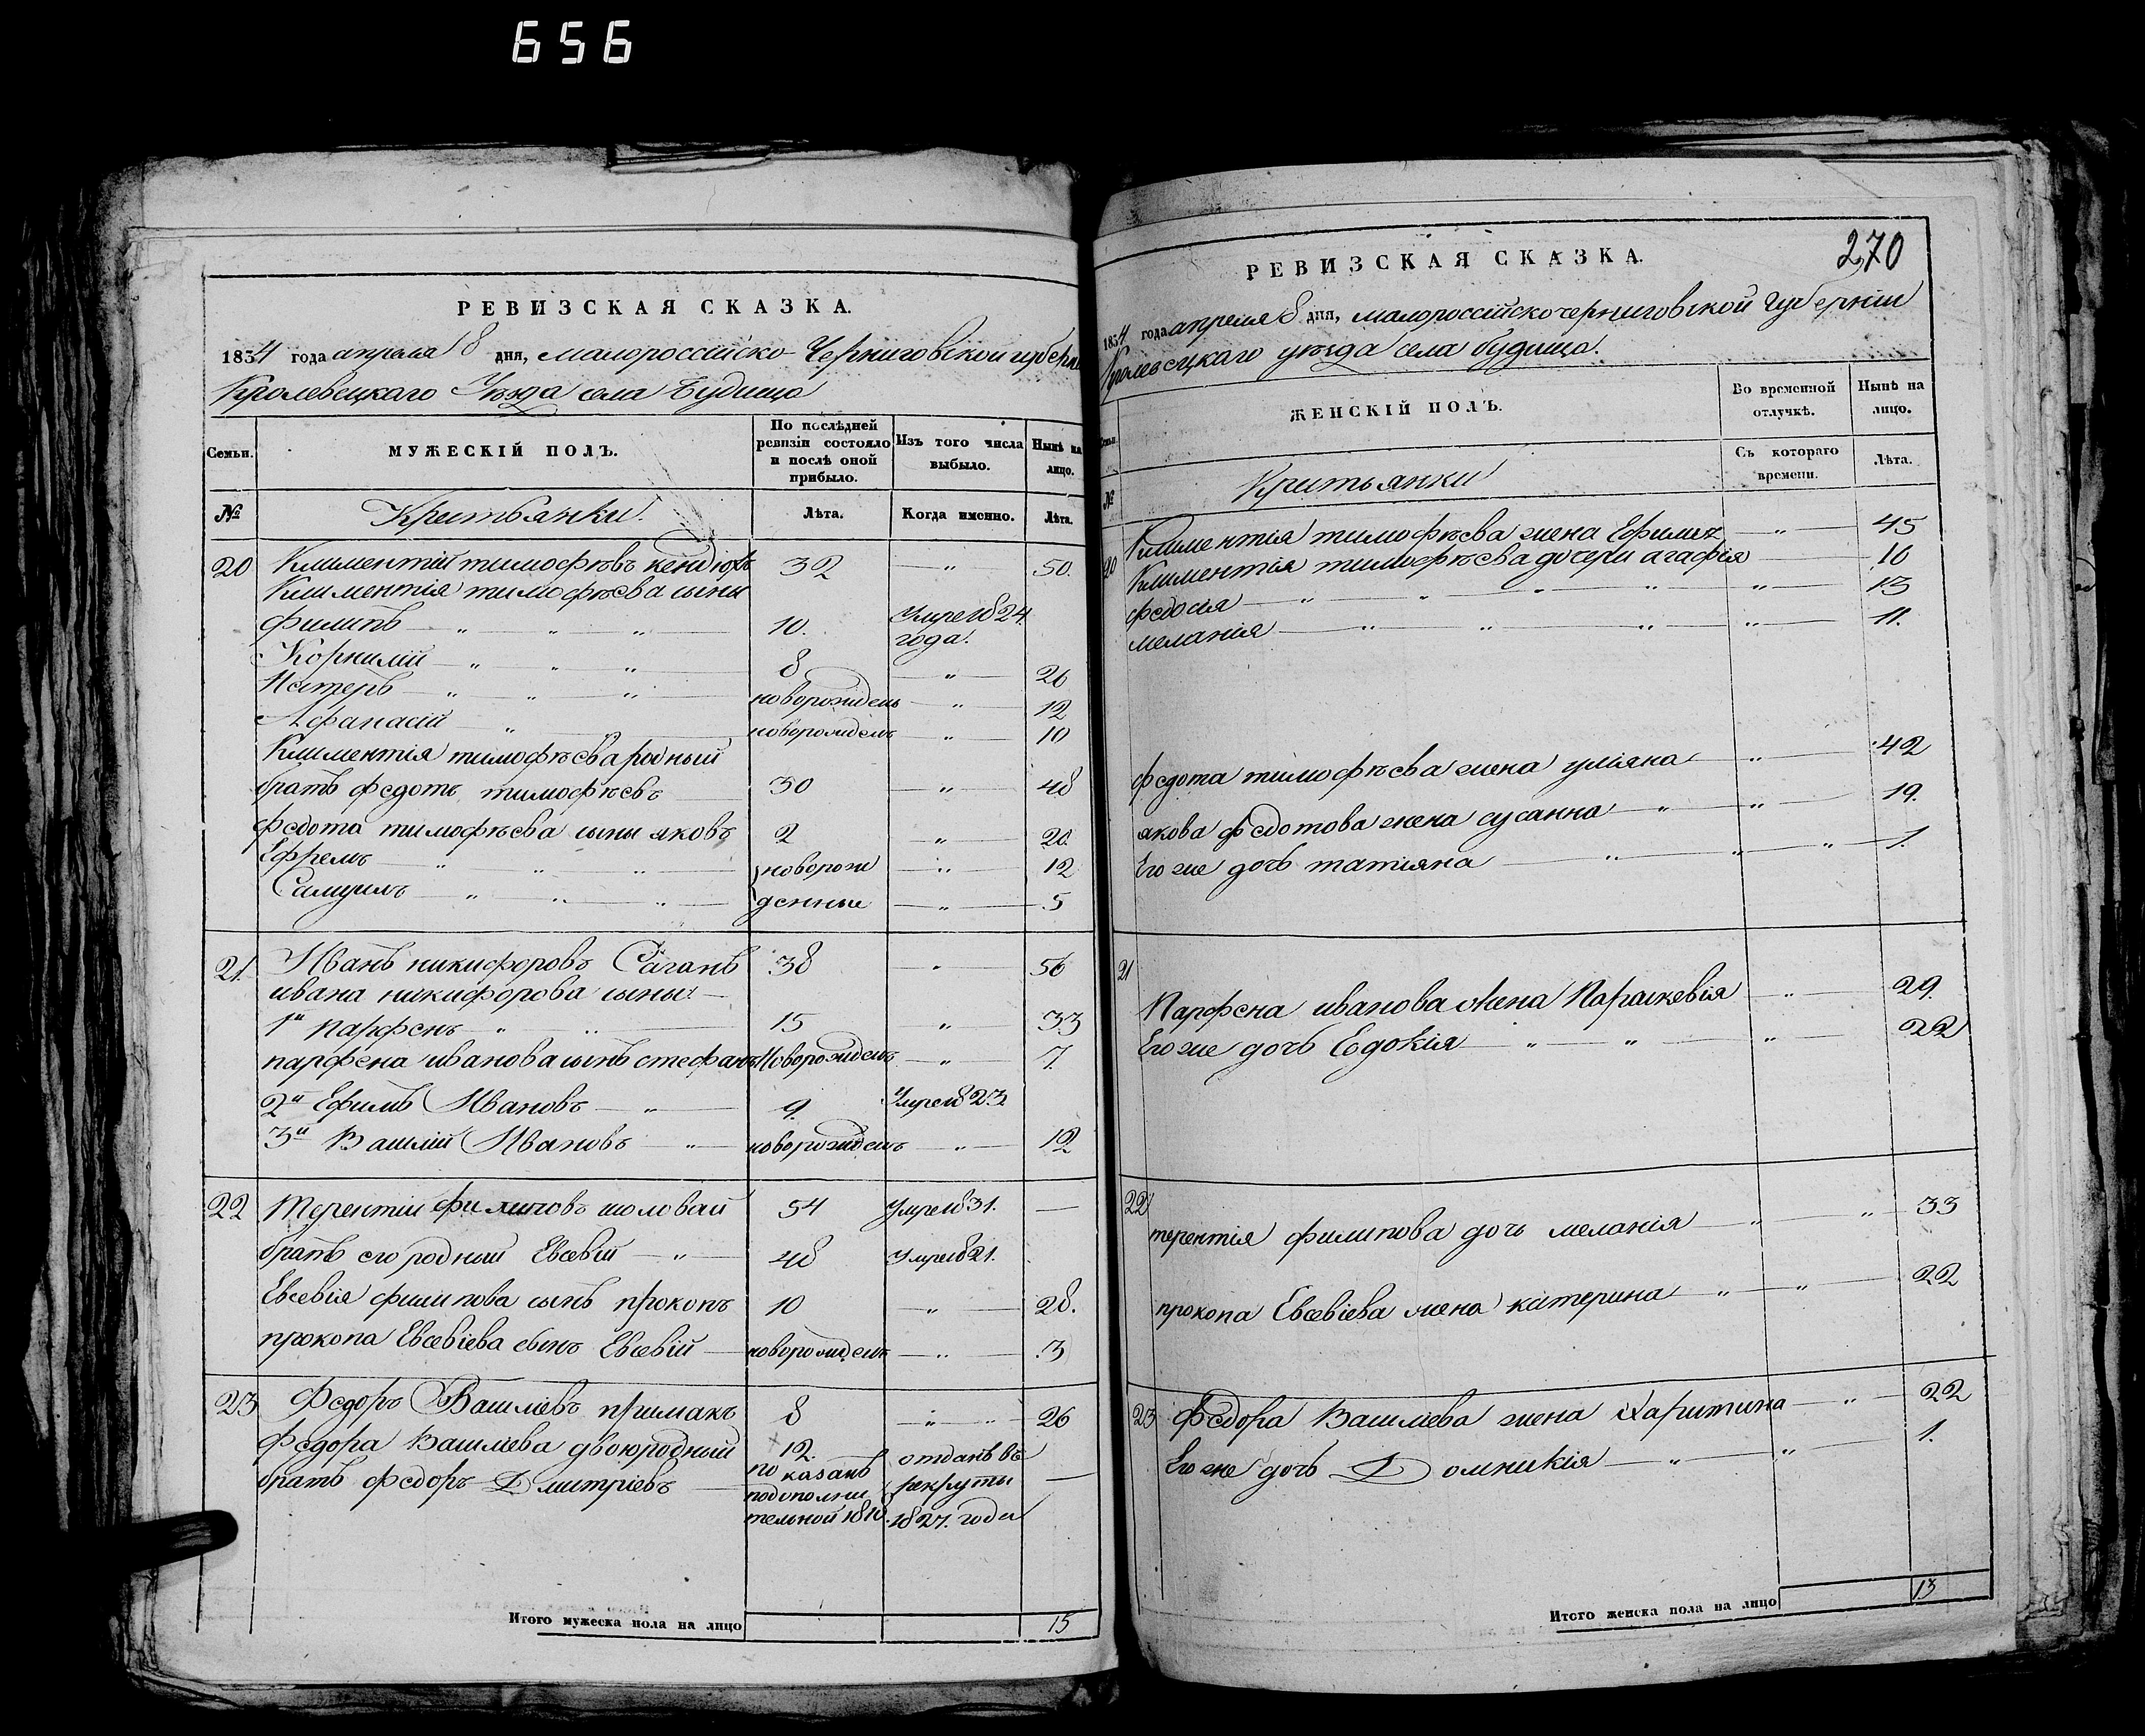 656
РЕВИЗСКАЯ СКАЗКА.
1834 года апреля 8 дня, малороссійско-Черниговской губерніи
Кролевецкаго Уезда села Будища
Семьи. МУЖЕСКІЙ ПОЛЪ. По послѣдней ревизіи состояло и послѣ оной прибыло. Изъ того числа выбыло. Нынѣ на лицо.
№ Крестьянки. Лѣта. Когда именно. Лѣта.
20 Климентій тимофѣевъ 32 — " — 50.
Климентія тимофѣева сыны
филипъ — " — " — " — 10. Умре 1824 года.
Корнилій — " — " — " 8 — " — 26
Нестеръ — " — " — " — новорожденъ — " — 12
Афанасій — " — новорожденъ — " — 10
Климентія тимофѣева родный
братъ федотъ тимофѣевъ — 30 — " — 48
федота тимофѣева сыны яковъ 2 — " — 20.
Ефремъ — " — " — " — новорож — " — 12
Самуилъ — " — " — " — денные — " — 5
21. Иванъ никифоровъ Саганъ 38 — " — 56
ивана никифорова сыны —
1й парфенъ — " — " — 15 " — 33
парфена иванова сынъ стефанъ Новорожденъ — " — 7.
2й Ефимъ Ивановъ — " — 9. Умре 1823
3й Василій Ивановъ — " — новорожденъ — " — 12
22 Терентій филиповъ шоловай 54 Умре 1831. —
братъ его родный Евсевій — " — 48 Умре 1821.
Евсевія филипова сынъ прокопъ 10 — " — 28.
прокопа Евсевіева сынъ Евсевій — новорожденъ — " — 3
23 Федоръ Василіевъ примакъ 8 — " — 26
федора Василіева двоюродный 12. отданъ въ
братъ федоръ Дмитріевъ — показанъ рекруты —
подополни
тельной 1818. 1827. года
Итого мужеска пола на лицо 15
270
РЕВИЗСКАЯ СКАЗКА.
1834 года апреля 8 дня, малороссійскочерниговской губерніи
Кролевецкаго уезда села будища.
Семьи. ЖЕНСКІЙ ПОЛЪ. Во временной отлучкѣ. Нынѣ на лицо.
№ Крестьянки Съ котораго времени. Лѣта.
20 Климентія тимофѣева жена Ефимья — " — 45
Климентія тимофѣева дочери агафія — 16
федосія — " — " — " — " — " — 13
меланія — " — " — " — " — 11.
федота тимофѣева жена уліяна — " — 42
якова федотова жена сусанна — " — " — 19.
Его же дочь татіяна — " — " — " — 1.
21 Парфена иванова жена Параскевія — " — 29.
Его же дочь Евдокія — " — " — " — 22
22 терентія филипова дочь меланія — " — " — 33
прокопа Евсевіева жена катерина — " — " — 22
23 Федора Василіева жена Харитина — " — 22
Его же дочь Домникія — " — " — 1.
Итого женска пола на лицо 13